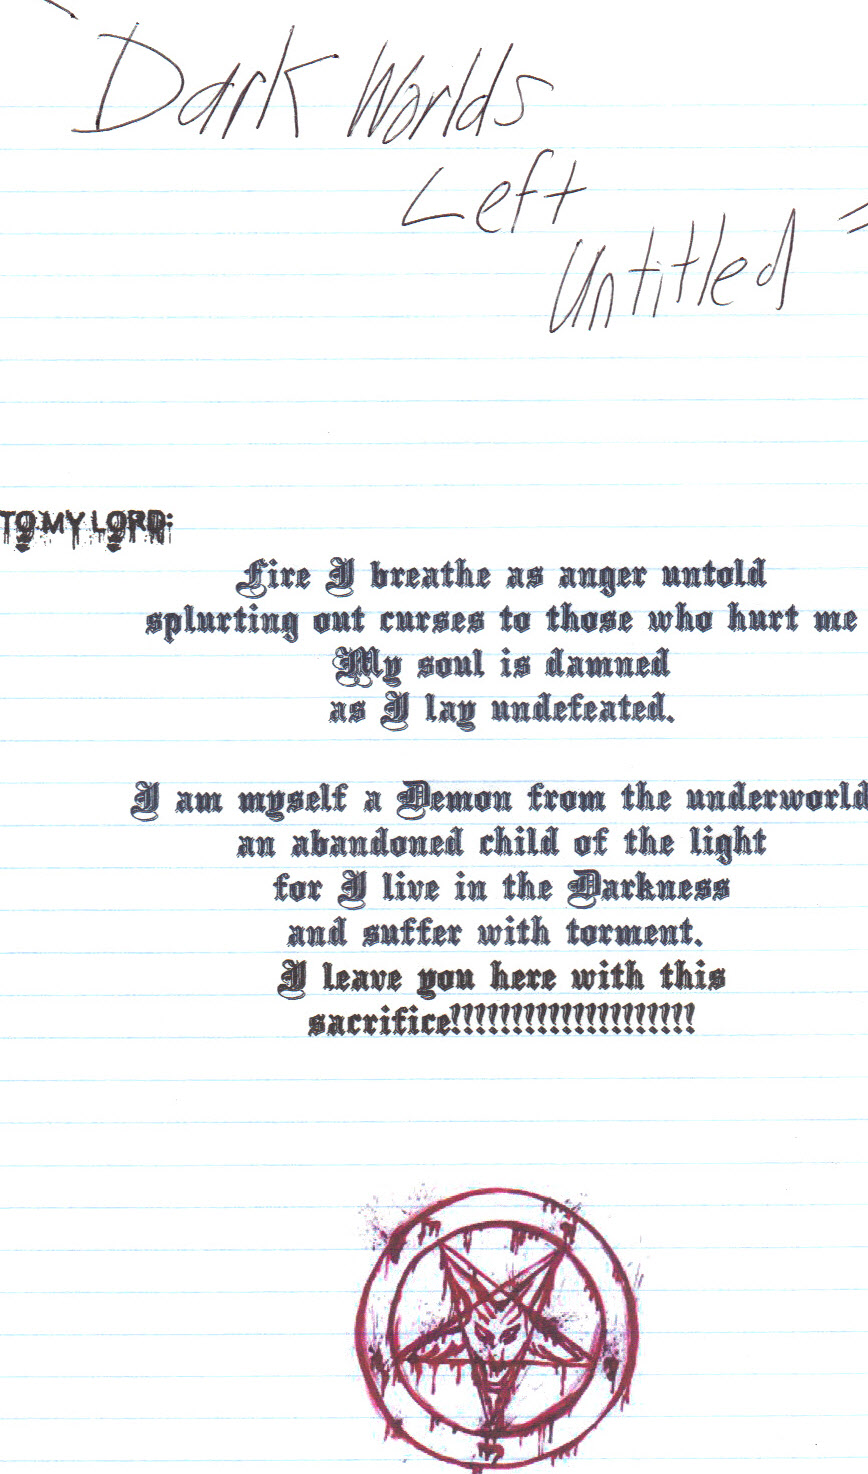 Dark Worlds
Left
Untitled
TO MY LORD:
Fire I breathe as anger untold
splurting out curses to those who hurt me
My soul is damned
as I lay undefeated.
I am myself a Demon from the underworld
an abandoned child of the light
for I live in the Darkness
and suffer with torment.
I leave you here with this
sacrifice!!!!!!!!!!!!!!!!!!!!